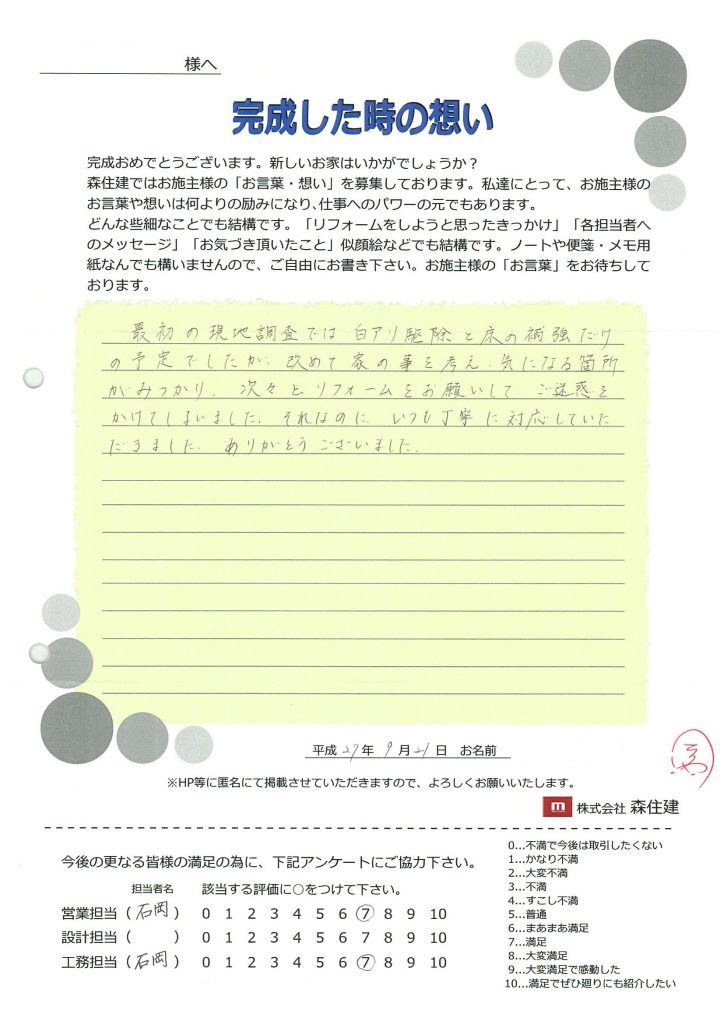 様へ
完成した時の想い
完成おめでとうございます。新しいお家はいかがでしょうか？
森住建ではお施主様の「お言葉・想い」を募集しております。私達にとって、お施主様の
お言葉や想いは何よりの励みになり、仕事へのパワーの元でもあります。
どんな些細なことでも結構です。「リフォームをしようと思ったきっかけ」「各担当者へ
のメッセージ」「お気づき頂いたこと」似顔絵などでも結構です。ノートや便箋・メモ用
紙なんでも構いませんので、ご自由にお書き下さい。お施主様の「お言葉」をお待ちして
おります。
最初の現地調査では白アリ駆除と床の補強だけ
の予定でしたが、改めて家の事を考え、気になる箇所
がみつかり、次々とリフォームをお願いして ご迷惑を
かけてしまいました。それなのに、いつも丁寧に対応していた
だきました。ありがとうございました。
平成27年 9月21日 お名前
※HP等に匿名にて掲載させていただきますので、よろしくお願いいたします。
m 株式会社 森住建
今後の更なる皆様の満足の為に、下記アンケートにご協力下さい。
担当者名 該当する評価に○をつけて下さい。
営業担当（石岡） 0 1 2 3 4 5 6 7 8 9 10
設計担当（ ） 0 1 2 3 4 5 6 7 8 9 10
工務担当（石岡） 0 1 2 3 4 5 6 7 8 9 10
0…不満で今後は取引したくない
1…かなり不満
2…大変不満
3…不満
4…すこし不満
5…普通
6…まあまあ満足
7…満足
8…大変満足
9…大変満足で感動した
10…満足でぜひ廻りにも紹介したい